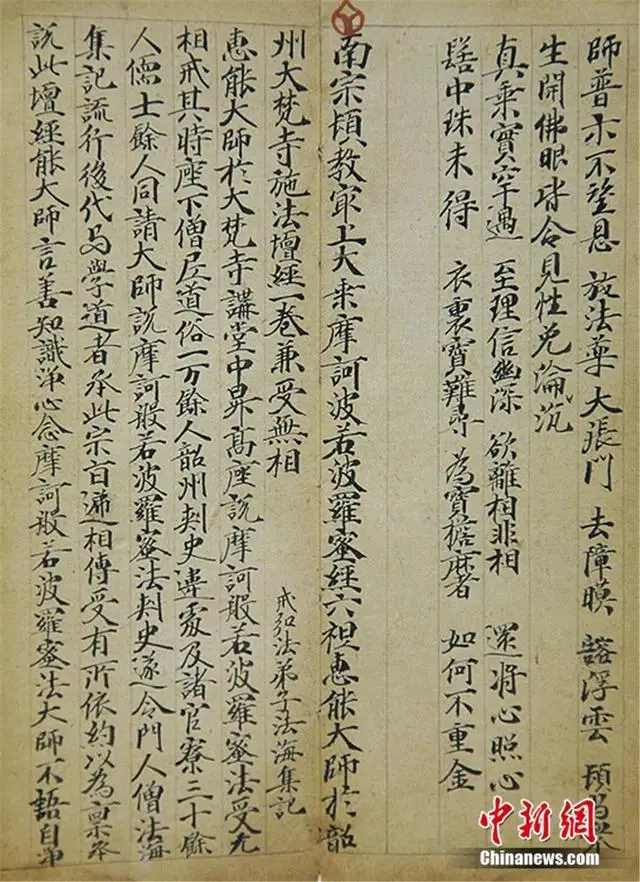 師普示不望恩 施法藥大張門 去障膜 豁浮雲 頓為
生開佛眼皆合見性免淪沉
真乘實罕遇 至理信幽深 欲離相非相 還將心照心
髻中珠未得 衣裏寶難尋 為寶擔麻者 如何不重金
南宗頓教最上大乘摩訶波若波羅蜜經六祖惠能大師於韶
州大梵寺施法壇經一卷兼受無相
戒弘法弟子法海集記
惠能大師於大梵寺講堂中昇高座說摩訶般若波羅蜜法受无
相戒其時座下僧尼道俗一万餘人韶州刾史違處及諸官寮三十餘
人儒士餘人同請大師說摩訶般若波羅蜜法刾史遂令門人僧法海
集記流行後代与學道者承此宗旨遞相傳受有所依約以為稟承
說此壇經能大師言善知識淨心念摩訶般若波羅蜜法大師不語自
中新網
Chinanews.com